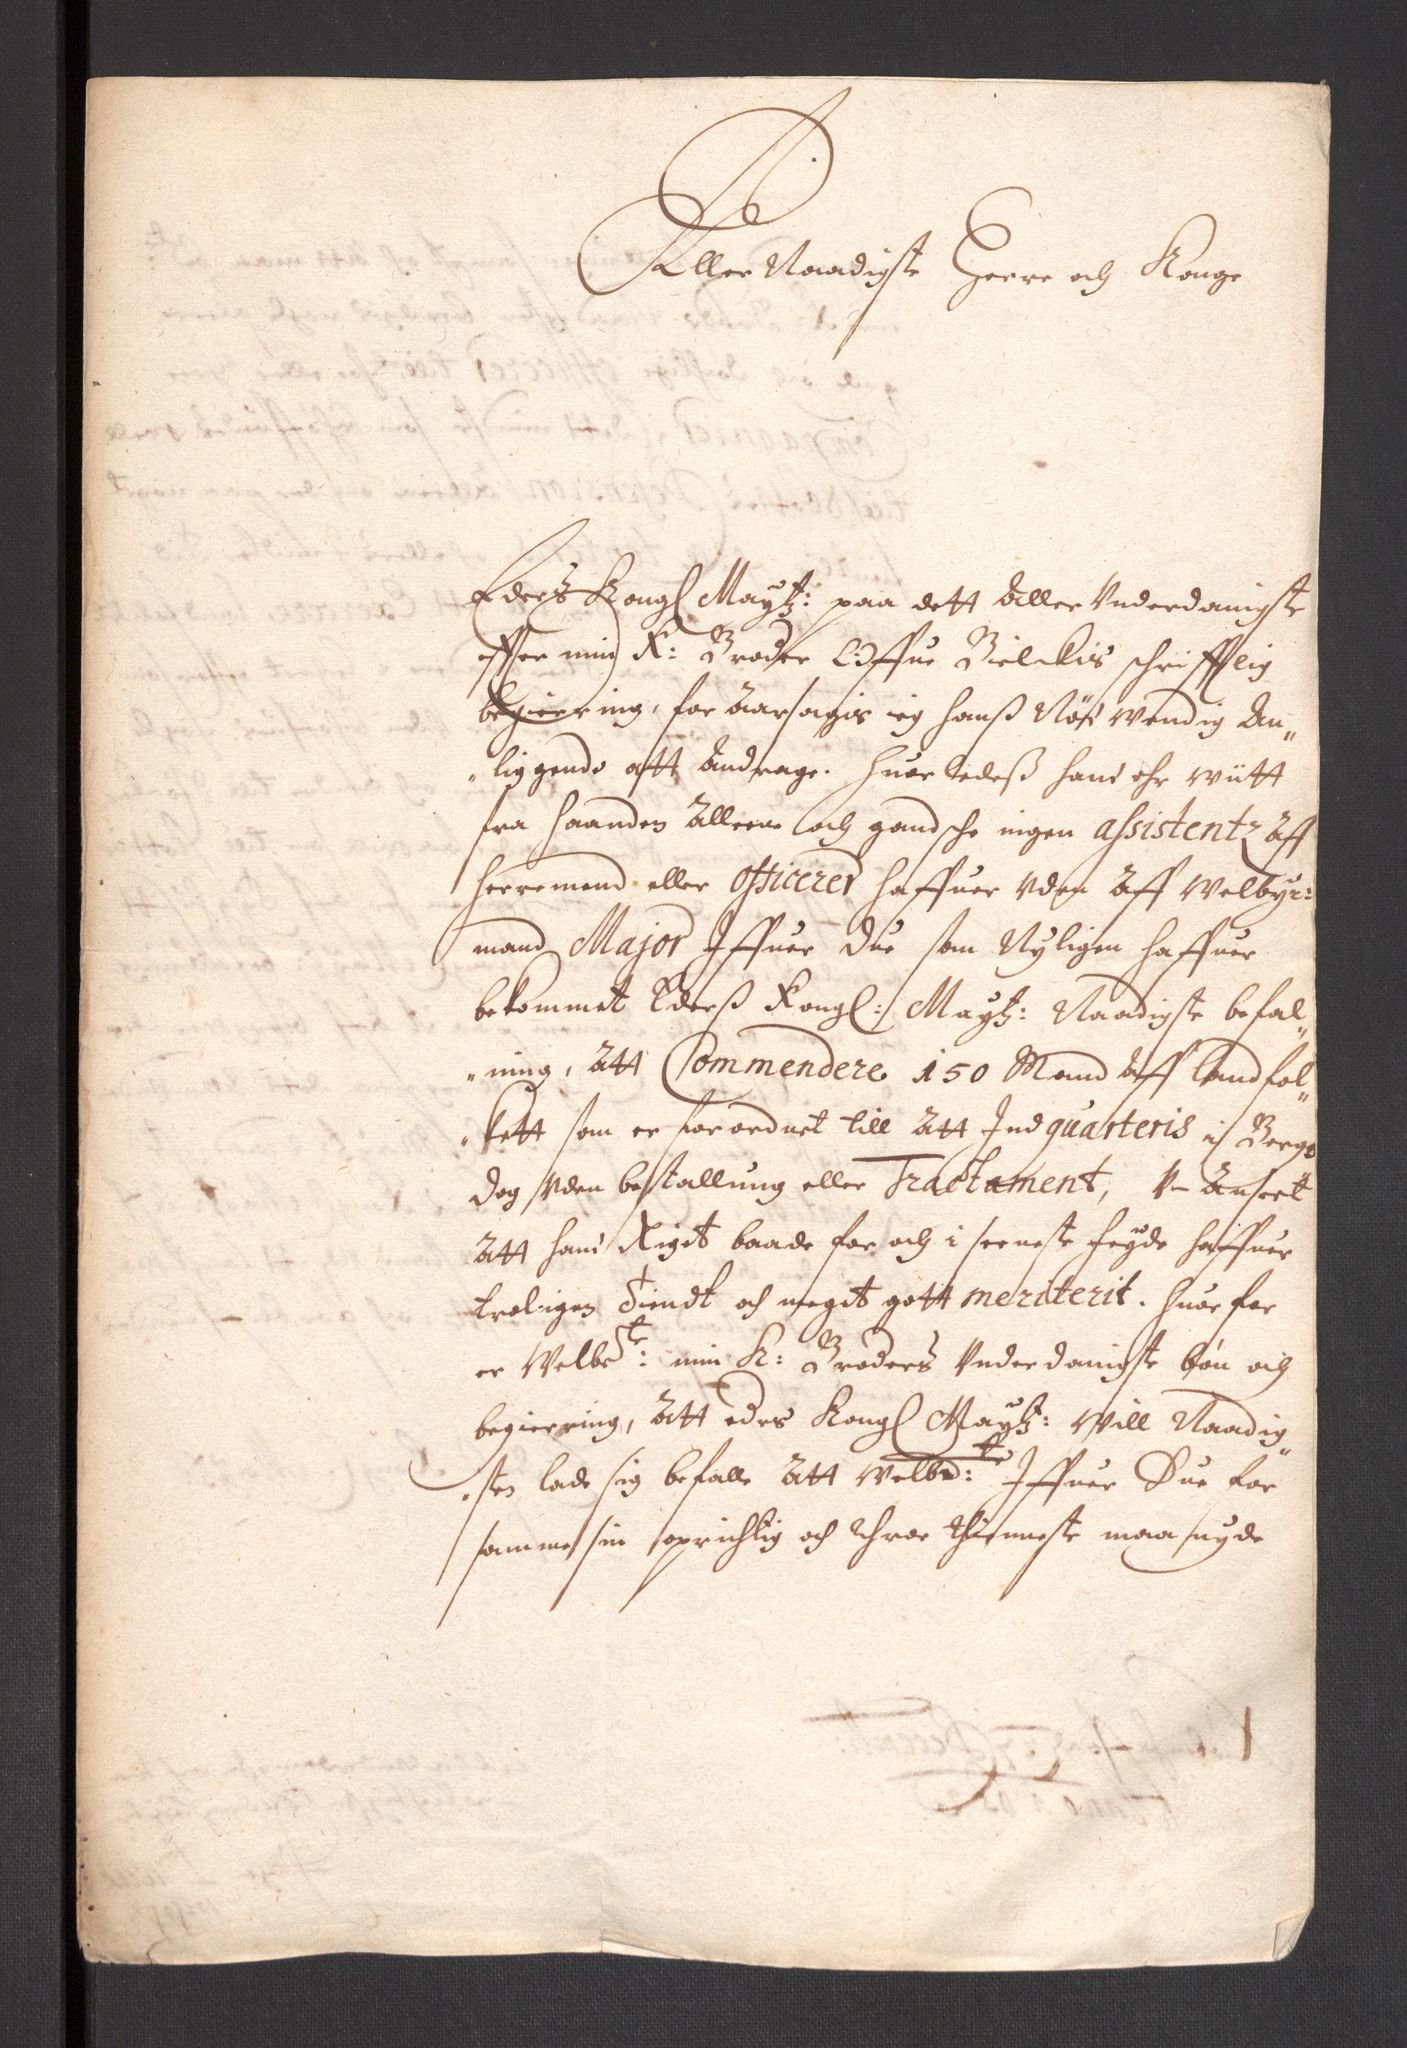 Aller Naadigste Herre och Konge
Eders Kongl Maytz: paa dett Aller Underdanigste
effter min K: Broder Offue Bielckis schrifftlig
begiering, for Aarsagis ieg hanß Nödwendig An„
„liggende att Andrage. huorledeß hand ehr wiitt
fra haanden Allene och gandsche ingen assistentz Aff
herremend eller officerer haffuer Vden Aff Welbyr:
mand Major Iffuer Due som Nyligen haffuer
bekommet Ederß Kongl: Maytz: Naadigste befal„
„ning, Att Commendere 150 Mand Aff landfol„
„kett som er forordnet till Att Indquarteris i Berge
dog Vden bestallung eller Tractament, V-Anseet
Att hand Riget baade for och i seeneste feyde haffuer
troligen tiendt och meget gott meriterit. huorfor
er Welbte: min K: Broders Vnderdanigste bön och
begierring, Att eders Kongl Maytz: Will Naadig„
„sten lade sig befalle Att Welbdte: Iffuer Due for
samme sin oprichtig och throe thienneste maa nyde